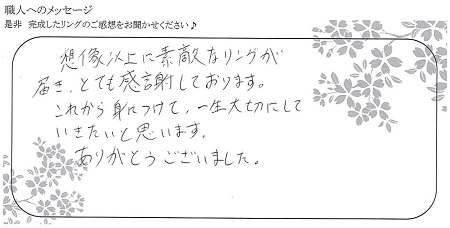 職人へのメッセージ
是非 完成したリングのご感想をお聞かせください♪
想像以上に素敵なリングが
届き、とても感謝しております。
これから身につけて、一生大切にして
いきたいと思います。
ありがとうございました。